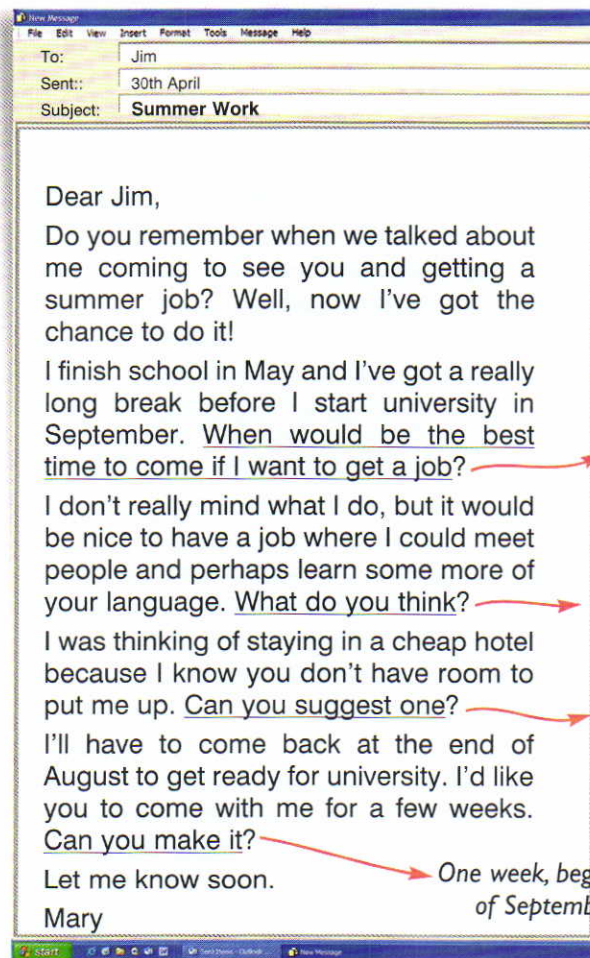 New Message
File Edit View Insert Format Tools Message Help
To: Jim
Sent:: 30th April
Subject: Summer Work
Dear Jim,
Do you remember when we talked about
me coming to see you and getting a
summer job? Well, now I've got the
chance to do it!
I finish school in May and I've got a really
long break before I start university in
September. When would be the best
time to come if I want to get a job?
I don't really mind what I do, but it would
be nice to have a job where I could meet
people and perhaps learn some more of
your language. What do you think?
I was thinking of staying in a cheap hotel
because I know you don't have room to
put me up. Can you suggest one?
I'll have to come back at the end of
August to get ready for university. I'd like
you to come with me for a few weeks.
Can you make it?
One week, beg
of Septemb
Let me know soon.
Mary
start
New Message